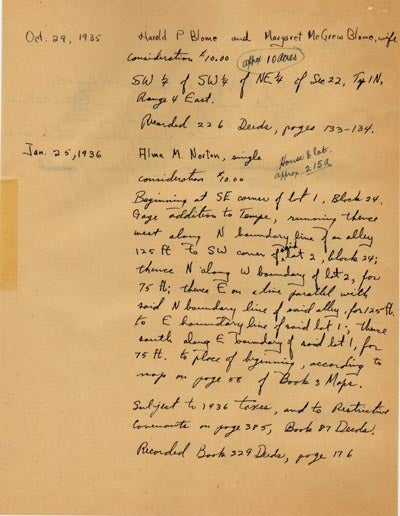 Oct. 29, 1935 Harold P Blome and Margaret McGrew Blome, wife
consideration $10.00 appx 10 acres
SW ¼ of SW ¼ of NE ¼ of Sec 22, Tp 1N,
Range 4 East.
Recorded 226 Deeds, pages 133-134.
Jan. 25, 1936 Alma M. Norton, single
House & lot.
approx. 215A
consideration $10.00
Beginning at SE corner of lot 1, Block 24.
Gage addition to Tempe, running thence
west along N boundary line of an alley
125 ft to SW corner of said lot 2, block 24;
thence N along W boundary of lot 2, for
75 ft; thence E on a line parallel with
said N boundary line of said alley, for 125 ft.
to E boundary line of said lot 1; thence
south along E boundary of said lot 1, for
75 ft. to place of beginning, according to
map on page 58 of Book 3 Maps.
Subject to 1936 taxes, and to Restrictive
Covenants on page 385, Book 87 Deeds.
Recorded Book 229 Deeds, page 176